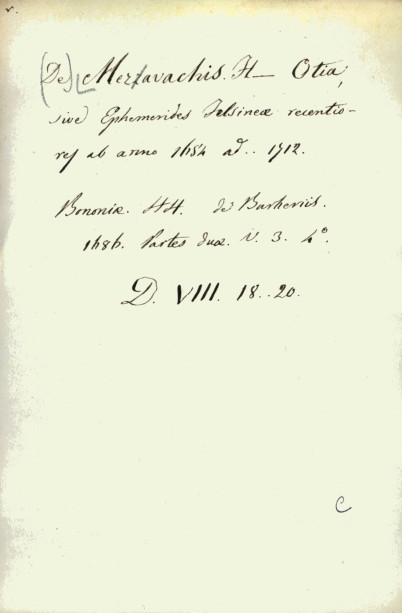 (De) Mezzavachis. H— Otia,
sive Ephemerides Felsineæ recentio-
res ab anno 1684 ad.. 1712.
Bononiæ. HH. de Barberiis.
1686. Partes duæ. V. 3. 4°.
D. VIII. 18..20.
C